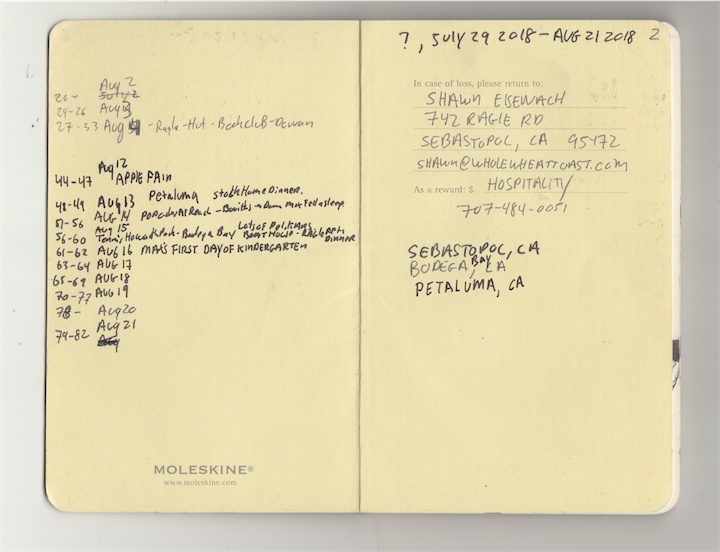 Aug 2
26-
24-26 Aug 3
27-33 Aug 4 - Ragle - Hut - Bookclub -
Aug 12
44-47 APPLE FAIR
48-49 AUG 13 Petaluma stable Home Dinner.
51-56 AUG 14
Aug 15 Lots of
56-60 Park - Bodega Bay BOAT HOUSE - DINNER
61-62 AUG 16 MAX'S FIRST DAY OF KINDERGARTEN
63-64 AUG 17
65-69 AUG 18
70-77 AUG 19
78- Aug 20
79-82 Aug 21
MOLESKINE®
www.moleskine.com
?, JULY 29 2018 - AUG 21 2018 2
In case of loss, please return to:
SHAWN
742 RAGLE RD
SEBASTOPOL, CA 95472
SHAWN@WHOLEWHEATTOAST.COM
As a reward: $ HOSPITALITY
707-484-0051
SEBASTOPOL, CA
BODEGA Bay, CA
PETALUMA, CA